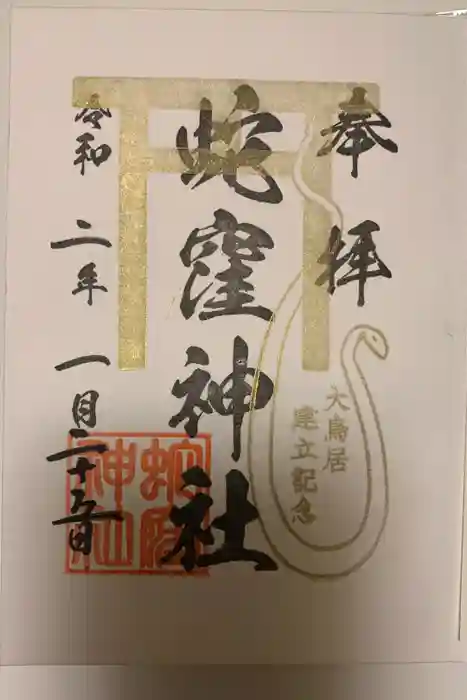 奉拝
大鳥居
建立記念
蛇窪神社
令和二年一月二十五日
蛇窪
神社